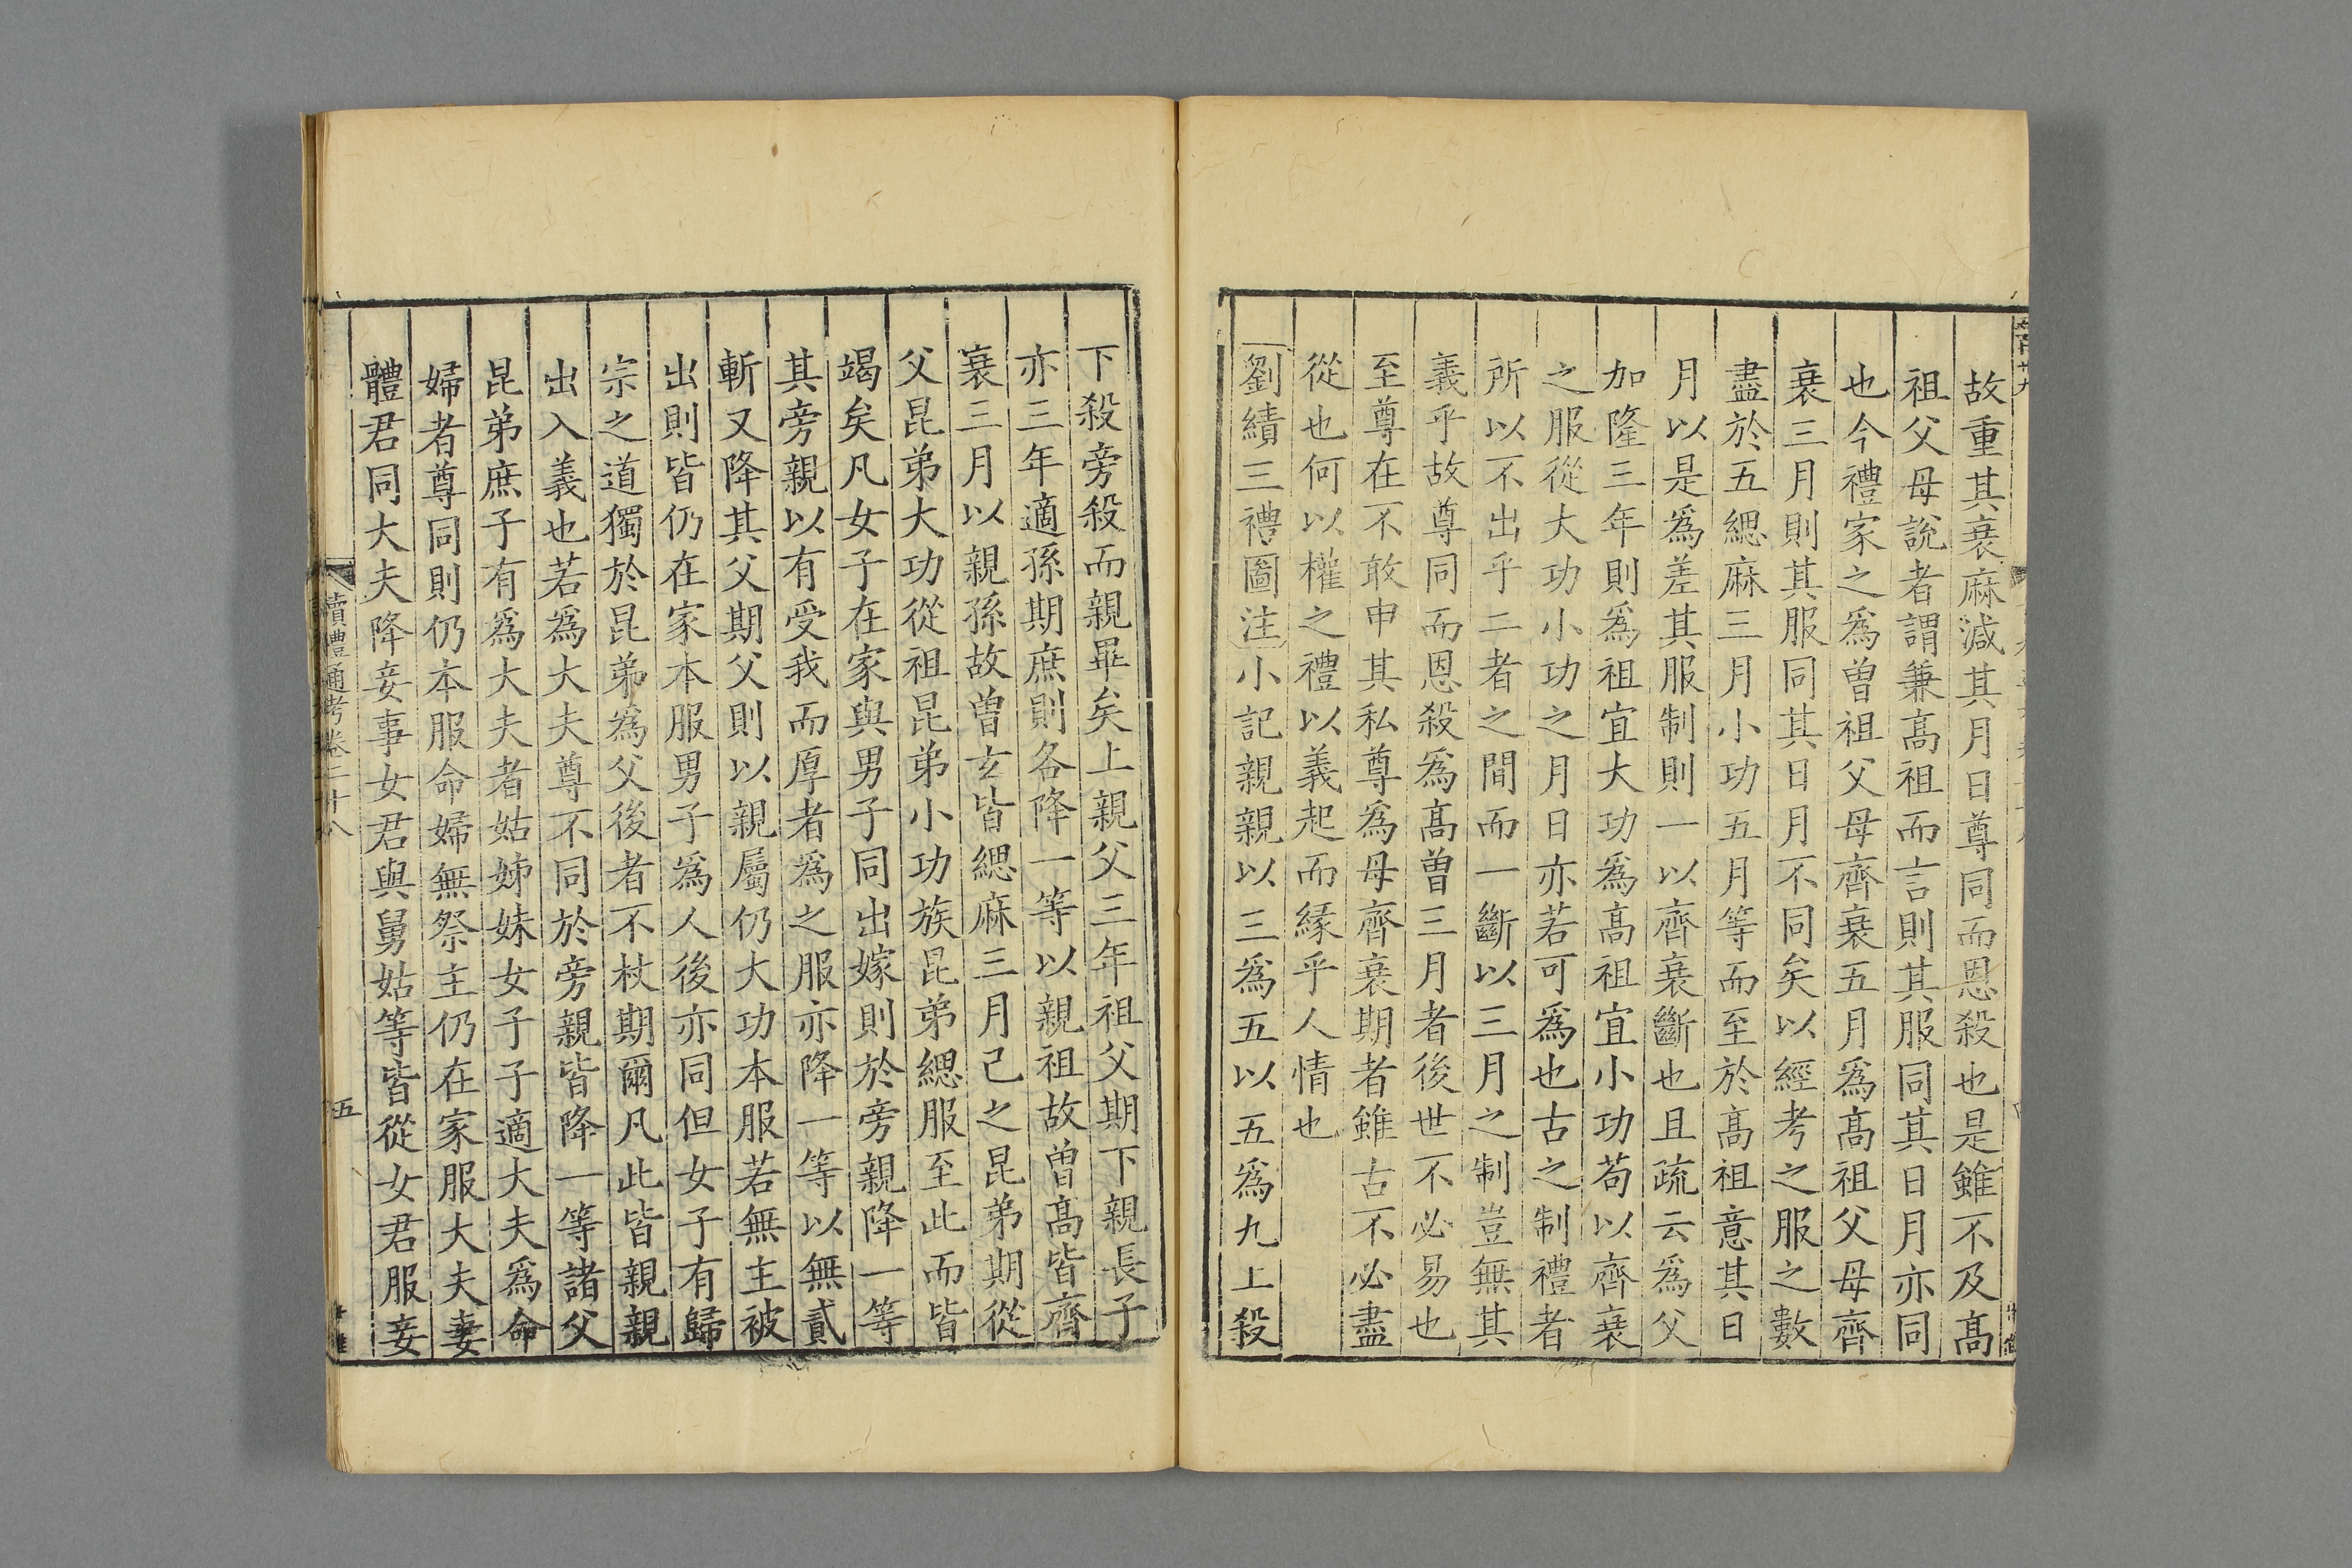 故重其衰麻減其月日尊同而恩殺也是雖不及髙
祖父母說者謂兼髙祖而言則其服同其日月亦同
也今禮家之為曽祖父母齊衰五月為髙祖父母齊
衰三月則其服同其日月不同矣以經考之服之數
盡於五緦麻三月小功五月等而至於髙祖意其日
月以是爲差其服制則一以齊衰斷也且疏云爲父
加隆三年則爲祖宜大功爲髙祖宜小功苟以齊衰
之服從大功小功之月日亦若可爲也古之制禮者
所以不出乎二者之間而一斷以三月之制豈無其
義乎故尊同而恩殺爲髙曽三月者後世不必易也
至尊在不敢申其私尊爲母齊衰期者雖古不必盡
從也何以權之禮以義起而縁乎人情也
劉績三禮圖注小記親親以三爲五以五爲九上殺
下殺旁殺而親畢矣上親父三年祖父期下親長子
亦三年適孫期庶則各降一等以親祖故曽髙皆齊
衰三月以親孫故曽玄皆緦麻三月己之昆弟期從
父昆弟大功從祖昆弟小功族昆弟緦服至此而皆
竭矣凡女子在家與男子同出嫁則於旁親降一等
其旁親以有受我而厚者爲之服亦降一等以無貳
斬又降其父期父則以親屬仍大功本服若無主被
出則皆仍在家本服男子爲人後亦同但女子有歸
宗之道獨於昆弟為父後者不杖期爾凡此皆親親
出入義也若爲大夫尊不同於旁親皆降一等諸父
昆弟庶子有爲大夫者姑姊妹女子子適大夫爲命
婦者尊同則仍本服命婦無祭主仍在家服大夫妻
體君同大夫降妾事女君與舅姑等皆從女君服妾
讀禮通考卷二十八
五